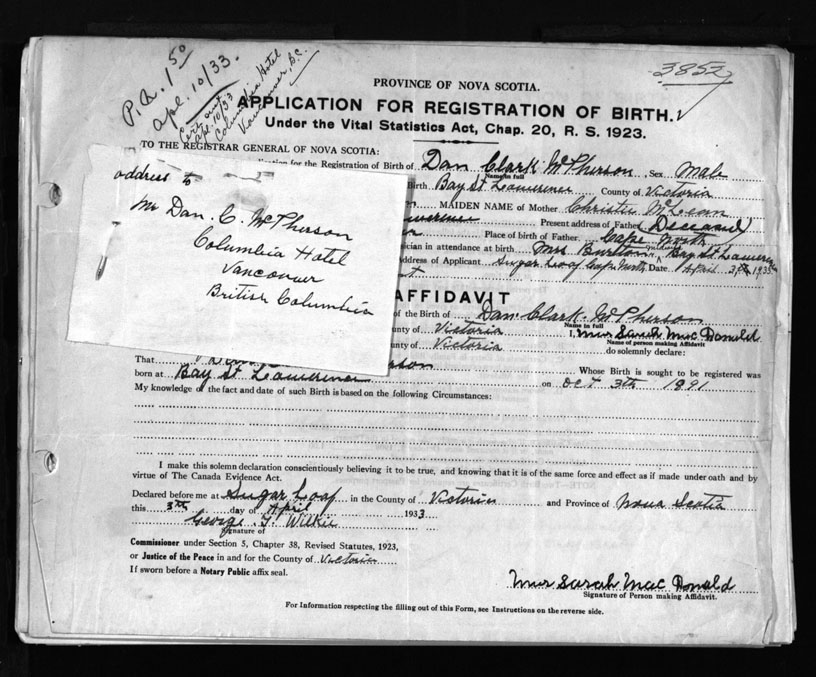 P.A. 1 50
Apl. 10/33.
Cert sent
Apl. 10/33
Columbia Hotel
Vancouver, B.C.
3852
PROVINCE OF NOVA SCOTIA.
APPLICATION FOR REGISTRATION OF BIRTH.
Under the Vital Statistics Act, Chap. 20, R. S. 1923.
TO THE REGISTRAR GENERAL OF NOVA SCOTIA:
for the Registration of Birth of Dan Clark McPherson Sex Male
Name in full
Birth Bay St Lawerence County of Victoria
MAIDEN NAME of Mother Christie McLean
Present address of Father (Deceased)
Place of birth of Father Cape North
ician in attendance at birth Mrs Burton Bay St Lawerence
ddress of Applicant Sugar Loaf Cape North Date April 3
address to
Mr Dan. C. McPherson
Columbia Hotel
Vancouver
British Columbia
AFFIDAVIT
of the Birth of Dan. Clark. McPherson
Name in full
unty of Victoria I, Mrs Sarah Mac Donald
Name of person making Affidavit
unty of Victoria do solemnly declare:
That Whose Birth is sought to be registered was
born at Bay St Lawerence on Oct 3th 1891
My knowledge of the fact and date of such Birth is based on the following Circumstances:
I make this solemn declaration conscientiously believing it to be true, and knowing that it is of the same force and effect as if made under oath and by
virtue of The Canada Evidence Act.
Declared before me at Sugar Loaf in the County of Victoria and Province of Nova Scotia
this 3th day of April 1933
George T. Wilkie
Signature of
Commissioner under Section 5, Chapter 38, Revised Statutes, 1923,
or Justice of the Peace in and for the County of Victoria
If sworn before a Notary Public affix seal.
Mrs Sarah Mac Donald
Signature of Person making Affidavit.
For Information respecting the filling out of this Form, see Instructions on the reverse side.